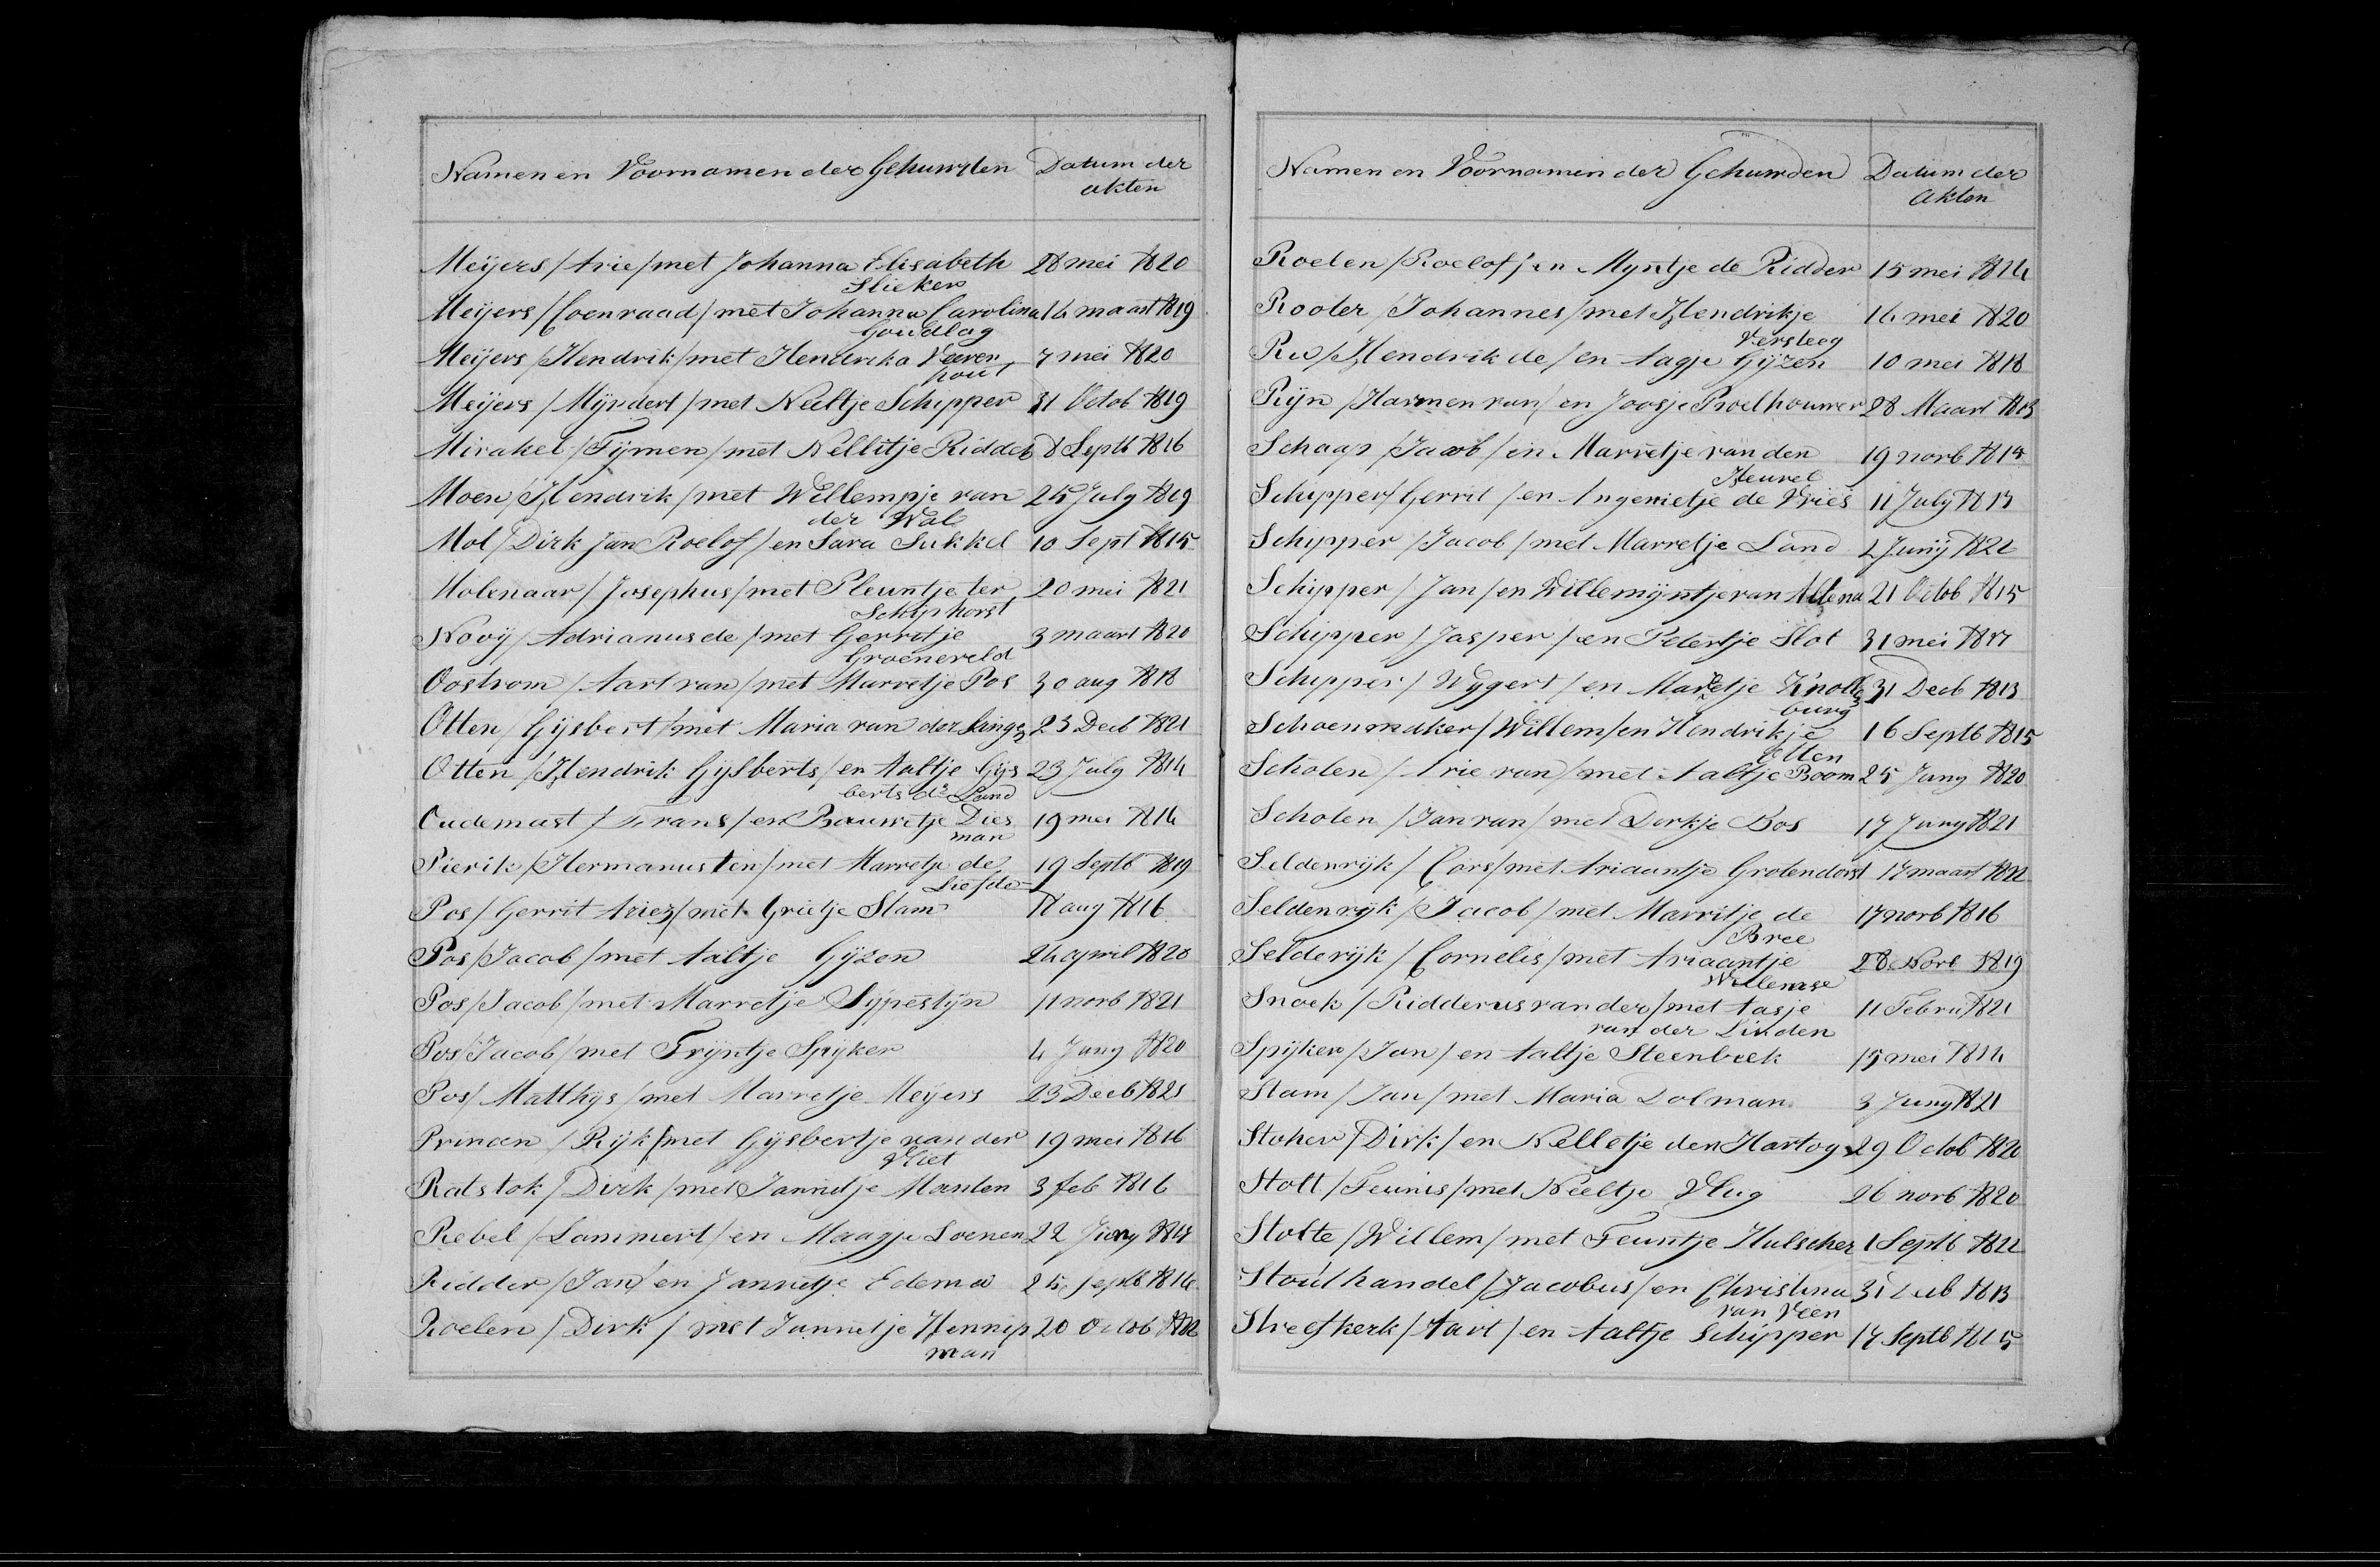 Namen en Voornamen der Gehuwden Datum der
akten
Meijers / Arie / met Johanna Elisabeth 28 mei 1820
Slieker
Meijers / Coenraad / met Johanna Carolina 14 maart 1819
Goudlag
Meijers / Hendrik / met Hendrika Veeren 7 mei 1820
pout
Meijers / Mijndert / met Neeltje Schipper 31 Octob 1819
Mirakel / Tijmen / met Nelletje Ridder 8 Septb 1816
Moen / Hendrik / met Willempje van 25 July 1819
der Wal
Mol / Dirk Jan Roelof / en Sara Sukkel 10 Sept 1815
Molenaar / Josephus / met Pleuntje ter 20 mei 1821
Schiphorst
Nooij / Adrianus de / met Gerritje 3 maart 1820
Groeneveld
Oostrom / Aart van / met Marretje Pos 30 aug 1818
Otten / Gijsbert / met Maria van der Linge 23 Decb 1821
Otten / Hendrik Gijsberts / en Aaltje Gijs 23 July 1814
berts de Land
Oudemast / Frans / en Bauwetje Dies 19 mei 1814
man
Pierik / Hermanus ten / met Marretje de 19 Septb 1819
Liefde
Pos / Gerrit Ariez / met Grietje Stam 11 aug 1816
Pos / Jacob / met Aaltje Gijzen 24 april 1820
Pos / Jacob / met Marretje Sypestijn 11 novb 1821
Pos / Jacob / met Trijntje Spijker 4 Juny 1820
Pos / Matthijs / met Marretje Meijers 23 Decb 1821
Princen / Rijk / met Gijsbertje van der 19 mei 1816
Vliet
Ratstok / Dirk / met Jannetje Manten 3 feb 1816
Rebel / Lammert / en Maagje Loenen 22 Juny 1814
Ridder / Jan / en Jannetje Edema 25 Septb 1814
Roelen / Dirk / met Jannetje Hennip 20 Octob 1822
man
Namen en Voornamen der Gehuwden Datum der
Akten
Roelen / Roelof / en Myntje de Ridder 15 mei 1814
Rooler / Johannes / met Hendrikje 14 mei 1820
Versteeg
Ru / Hendrik de / en Aagje Gijzen 10 mei 1818
Rijn / Harmen van / en Joosje Roelhouwer 28 Maart 1813
Schaap / Jacob / en Marretje van den 19 novb 1814
Heuvel
Schipper / Gerrit / en Angenietje de Vries 11 July 1813
Schipper / Jacob / met Marretje Land 2 Junij 1822
Schipper / Jan / en Willemijntje van Altena 21 Octob 1815
Schipper / Jasper / en Petertje Slot 31 mei 1817
Schipper / Wygert / en Marretje Knolle 31 Decb 1813
burg
Schoenmaker / Willem / en Hendrikje 16 Septb 1815
Otten
Scholen / Arie van / met Aaltje Boom 25 Juny 1820
Scholen / Jan van / met Dirkje Bos 17 Juny 1821
Seldenrijk / Cors / met Ariaantje Grotendorst 17 maart 1822
Seldenrijk / Jacob / met Marritje de 17 novb 1816
Bree
Selderijk / Cornelis / met Ariaantje 28 Novb 1819
Willemse
Snoek / Ridderus van der / met Aasje 11 Febru 1821
van der Linden
Spijker / Jan / en Aaltje Steenbeek 15 mei 1814
Stam / Jan / met Maria Dolman 3 Juny 1821
Stoker / Dirk / en Nelletje den Hartog 29 Octob 1820
Stolt / Teunis / met Neeltje Vlug 26 novb 1820
Stolte / Willem / met Teuntje Hulscher 1 Septb 1822
Stouthandel / Jacobus / en Christina 31 Decb 1813
van Veen
Streefkerk / Aart / en Aaltje Schipper 17 Septb 1815